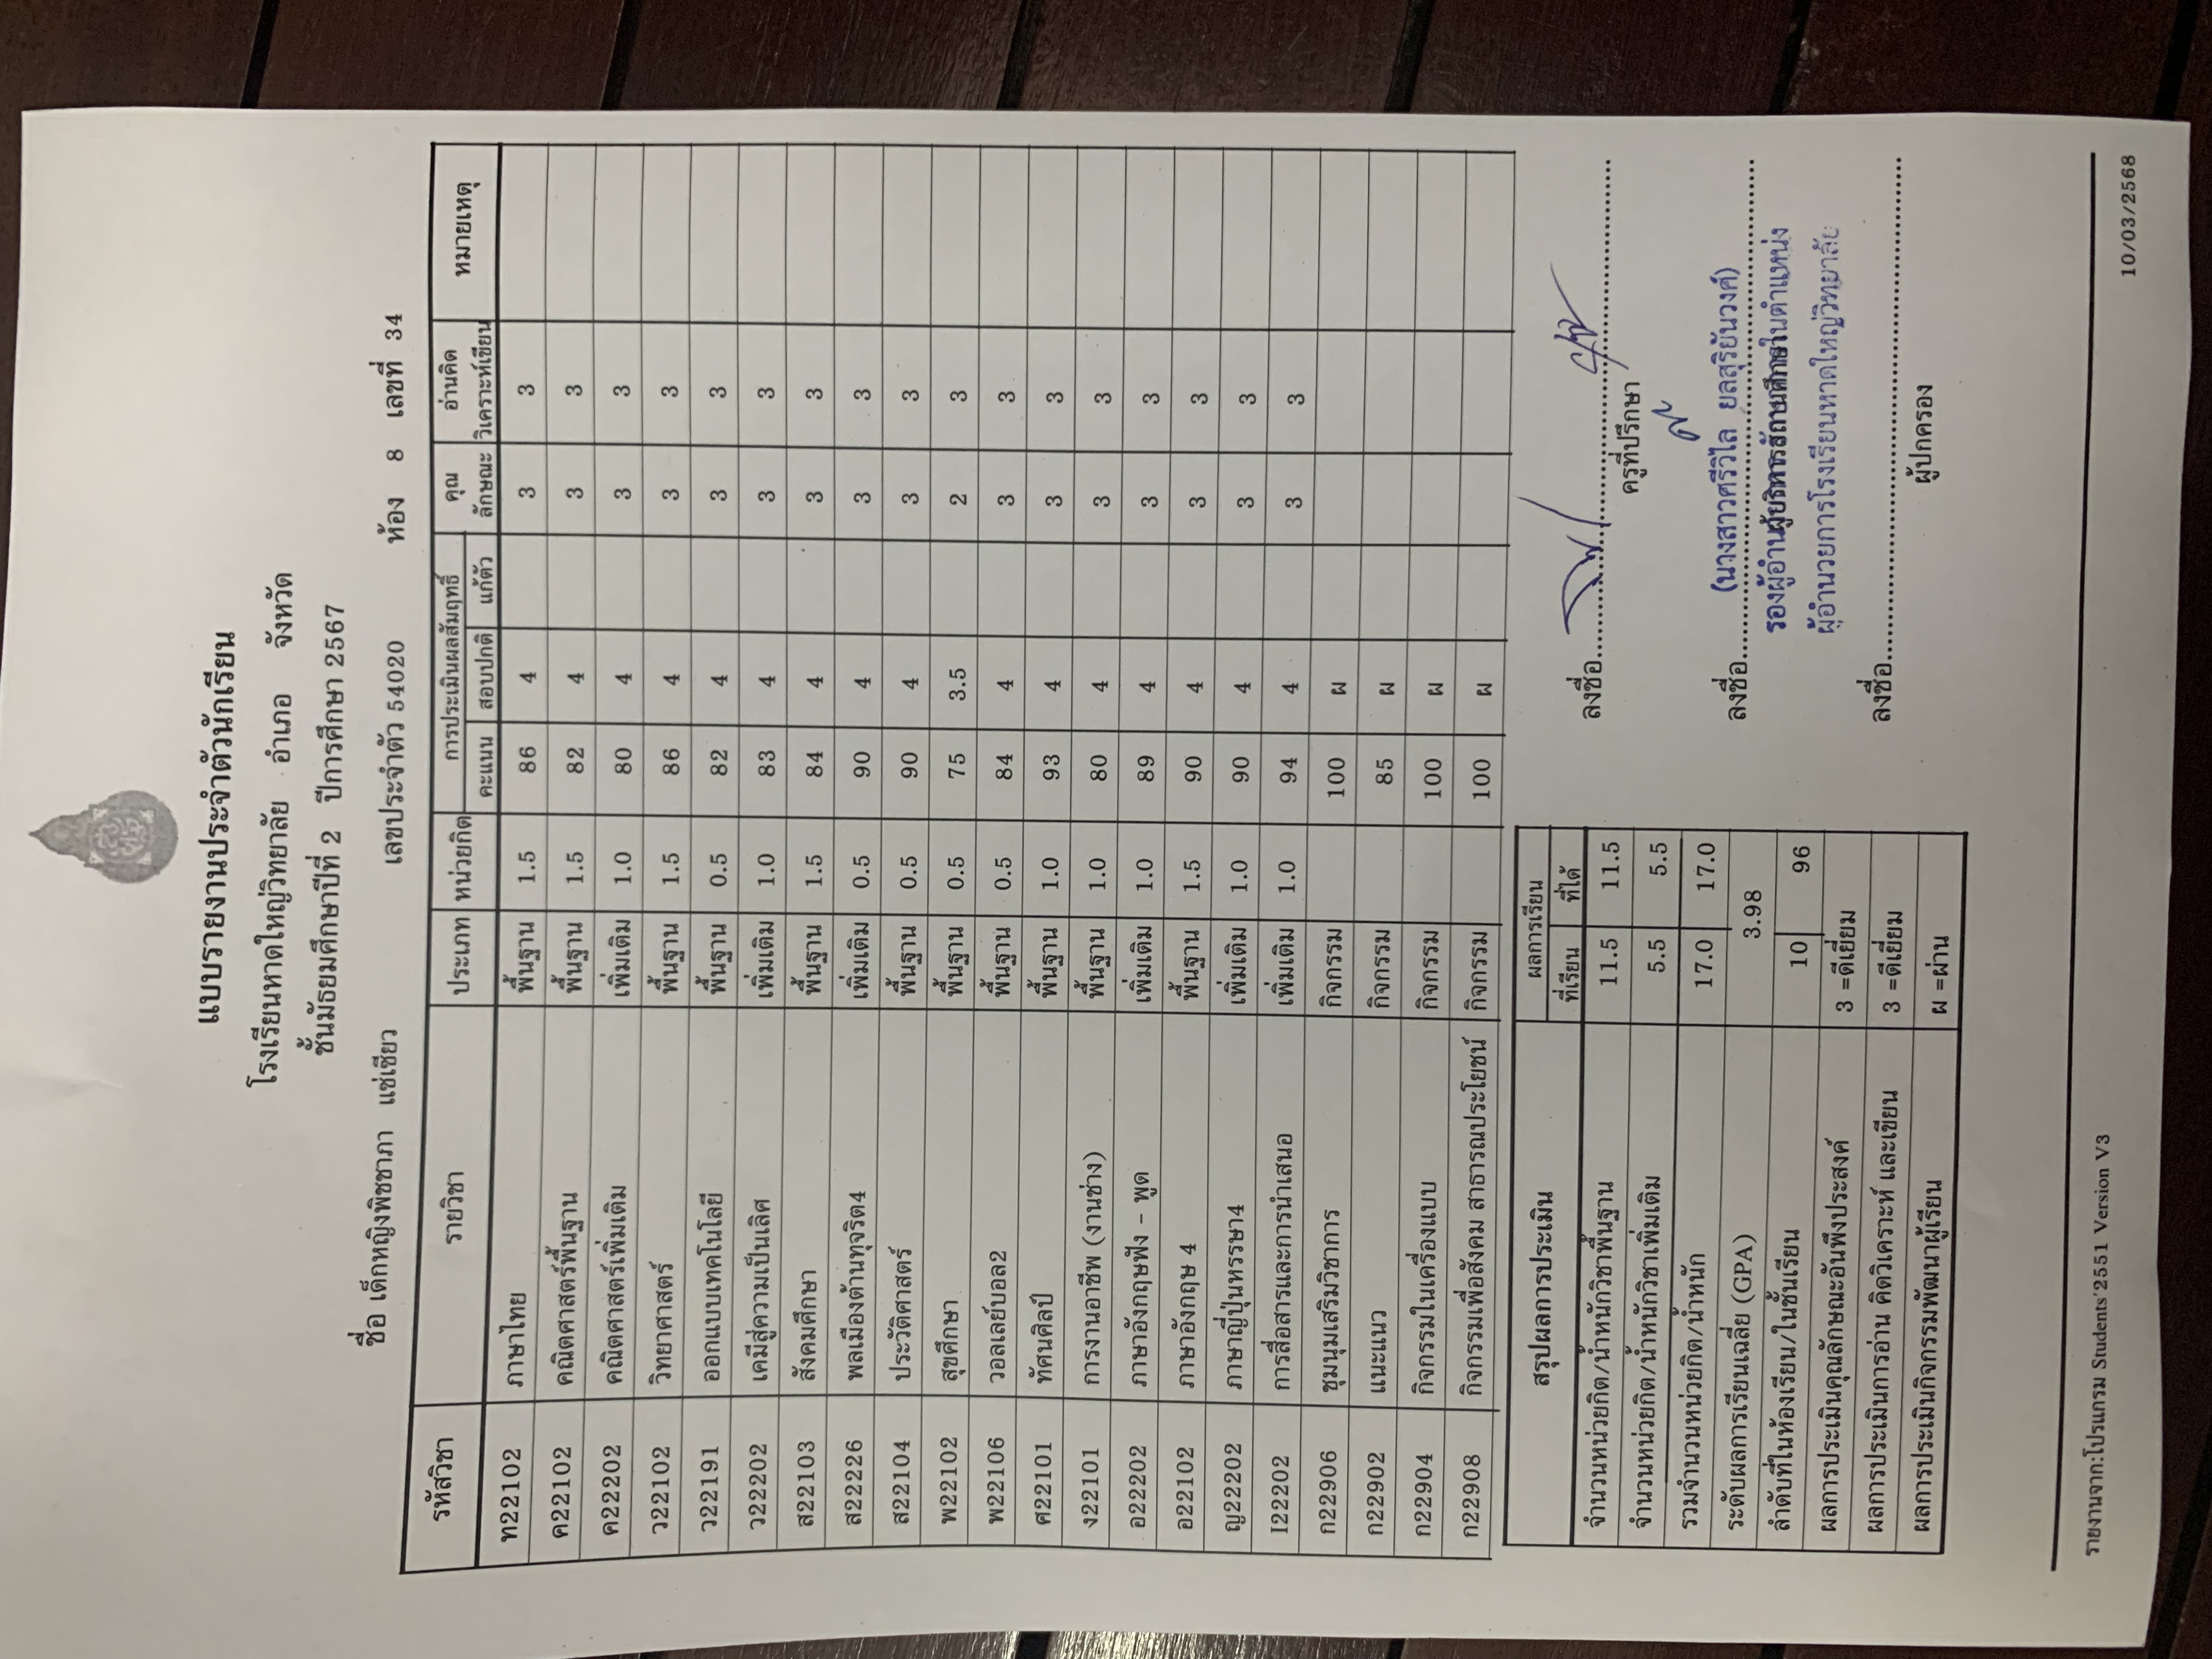 แบบรายงานประจำตัวนักเรียน
โรงเรียนหาดใหญ่วิทยาลัย อำเภอ จังหวัด
ชั้นมัธยมศึกษาปีที่ 2 ปีการศึกษา 2567
ชื่อ เด็กหญิงพิชชาภา แซ่เซียว เลขประจำตัว 54020 ห้อง 8 เลขที่ 34
รหัสวิชา รายวิชา ประเภท หน่วยกิต การประเมินผลสัมฤทธิ์ คุณ อ่านคิด หมายเหตุ
คะแนน สอบปกติ แก้ตัว ลักษณะ วิเคราะห์เขียน
ท22102 ภาษาไทย พื้นฐาน 1.5 86 4 3 3
ค22102 คณิตศาสตร์พื้นฐาน พื้นฐาน 1.5 82 4 3 3
ค22202 คณิตศาสตร์เพิ่มเติม เพิ่มเติม 1.0 80 4 3 3
ว22102 วิทยาศาสตร์ พื้นฐาน 1.5 86 4 3 3
ว22191 ออกแบบเทคโนโลยี พื้นฐาน 0.5 82 4 3 3
ว22202 เคมีสู่ความเป็นเลิศ เพิ่มเติม 1.0 83 4 3 3
ส22103 สังคมศึกษา พื้นฐาน 1.5 84 4 3 3
ส22226 พลเมืองต้านทุจริต4 เพิ่มเติม 0.5 90 4 3 3
ส22104 ประวัติศาสตร์ พื้นฐาน 0.5 90 4 3 3
พ22102 สุขศึกษา พื้นฐาน 0.5 75 3.5 2 3
พ22106 วอลเลย์บอล2 พื้นฐาน 0.5 84 4 3 3
ศ22101 ทัศนศิลป์ พื้นฐาน 1.0 93 4 3 3
ง22101 การงานอาชีพ (งานช่าง) พื้นฐาน 1.0 80 4 3 3
อ22202 ภาษาอังกฤษฟัง - พูด เพิ่มเติม 1.0 89 4 3 3
อ22102 ภาษาอังกฤษ 4 พื้นฐาน 1.5 90 4 3 3
ญ22202 ภาษาญี่ปุ่นหรรษา4 เพิ่มเติม 1.0 90 4 3 3
I22202 การสื่อสารและการนำเสนอ เพิ่มเติม 1.0 94 4 3 3
ก22906 ชุมนุมเสริมวิชาการ กิจกรรม 100 ผ
ก22902 แนะแนว กิจกรรม 85 ผ
ก22904 กิจกรรมในเครื่องแบบ กิจกรรม 100 ผ
ก22908 กิจกรรมเพื่อสังคม สาธารณประโยชน์ กิจกรรม 100 ผ
สรุปผลการประเมิน ผลการเรียน
ที่เรียน ที่ได้
จำนวนหน่วยกิต/น้ำหนักวิชาพื้นฐาน 11.5 11.5
จำนวนหน่วยกิต/น้ำหนักวิชาเพิ่มเติม 5.5 5.5
รวมจำนวนหน่วยกิต/น้ำหนัก 17.0 17.0
ระดับผลการเรียนเฉลี่ย (GPA) 3.98
ลำดับที่ในห้องเรียน/ในชั้นเรียน 10 96
ผลการประเมินคุณลักษณะอันพึงประสงค์ 3 =ดีเยี่ยม
ผลการประเมินการอ่าน คิดวิเคราะห์ และเขียน 3 =ดีเยี่ยม
ผลการประเมินกิจกรรมพัฒนาผู้เรียน ผ =ผ่าน
ลงชื่อ
ครูที่ปรึกษา
ลงชื่อ
(นางสาวศรีวิไล ยลสุริยันวงศ์)
รองผู้อำนวยการ รักษาการในตำแหน่ง
ผู้บริหารสถานศึกษา
ผู้อำนวยการโรงเรียนหาดใหญ่วิทยาลัย
ลงชื่อ
ผู้ปกครอง
รายงานจาก:โปรแกรม Students'2551 Version V3 10/03/2568